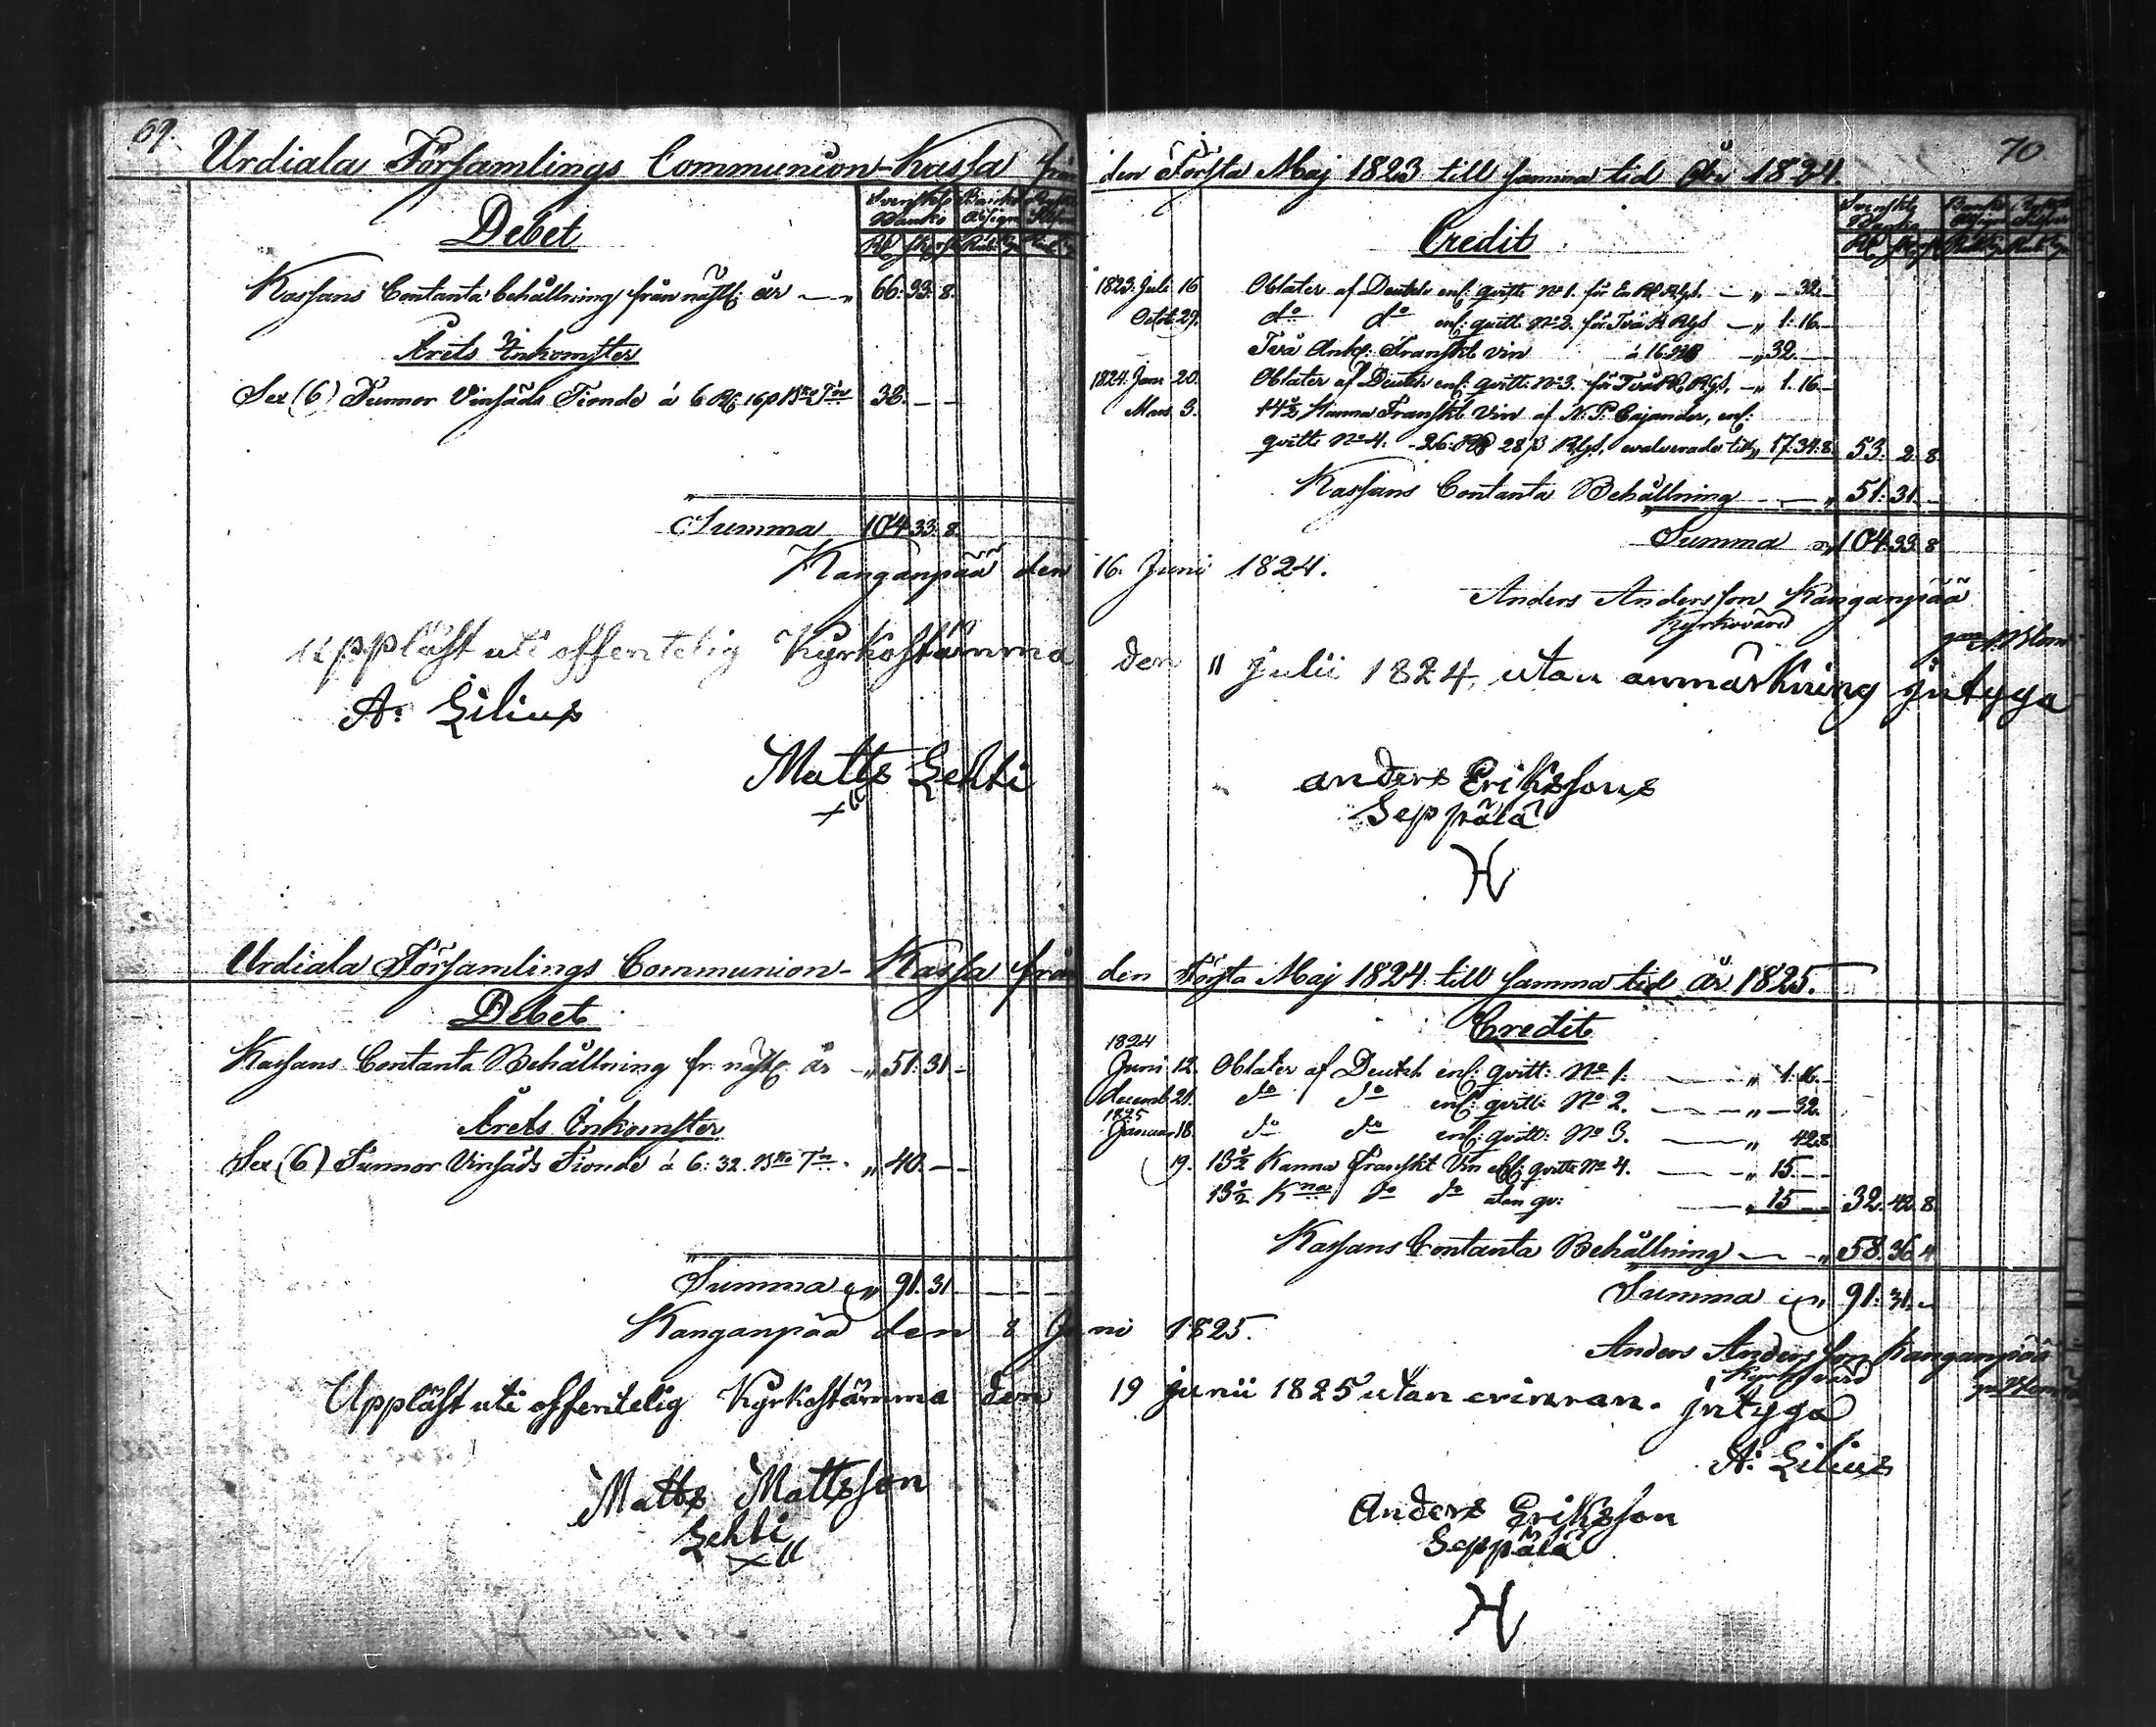 69.
Urdiala Församlings Communion-Kassa från
Debet
Svenskt Banco
Banco Assign
Kassans Contanta behållning från nästl: år — „ 66: 33: 8.
Årets Inkomster
Sex (6) Tunnor Vinsäds Tionde á 6 Rd: 16 p Bco Tn 38. — —
Summa 104 33: 8.
Kanganpää den
uppläst uti offentelig Kyrkostämma
A: Lilius
Matts Lehti
Urdiala Församlings Communion- Kassa från
Debet
Kassans Contanta Behållning fr. nästl. år — „ 51: 31. —
Årets Inkomster
Sex (6) Tunnor Vinsäds Tionde á 6: 32. Bco Tn. „ 40. — —
Summa „ 91. 31
Kanganpää den 8 Ju
Uppläst uti offentelig Kyrkostämma den
Matts Mattsson
Lehti
70
den Första Maj 1823 till samma tid År 1824.
Credit
Svenskt Banco
1823. Juli 16 Oblater af Deutsch enl: qvitt: No 1. för En Rd Rgs. — „ — 32. —
Octob. 29. do do enl: qvitt. No 2. för Två R Rgs — „ 1: 16. —
Två Ank: Franskt vin á 16 Rd — „ 32. —
1824. Janu 20. Oblater af Deutsch enl: qvitt: No 3. för Två Rd Rgs. — „ 1. 16 —
Mars 3. 14½ Kanna Franskt Vin af N. P. Cajander, enl:
qvitt No 4. - 26. Rd 28 β Rgs. evalverade till „ 17: 34: 8. 53. 2. 8.
Kassans Contanta Behållning — — „ 51: 31. —
Summa „ 104. 33. 8
16. Juni 1824.
Anders Andersson Kanganpää
Kyrkovärd
den 11 Julii 1824, utan anmärkning Jntyga
anders Erikssons
Seppälä
H
den Första Maj 1824 till samma tid År 1825.
Credit
1824
Juni 12. Oblater af Deutsch enl: qvitt: No 1. — — „ 1. 16. —
Decemb. 21. do do enl: qvitt: No 2. — — „ — 32.
1825
Januar 18. do do enl: qvitt: No 3. — — „ 42. 8.
19. 13½ Kanna Franskt Vin enl: qvitt: No 4. — — „ 15. —
13½ Kna do do utan qv: — „ 15 — 32. 42. 8.
Kassans Contanta Behållning — — „ 58. 36. 4
Summa „ 91: 31. —
ni 1825.
Anders Andersson Kanganpää
Kyrkovärd
19 junii 1825 utan erinran. Jntyga
A: Lilius
Anders Eriksson
Seppälä
H